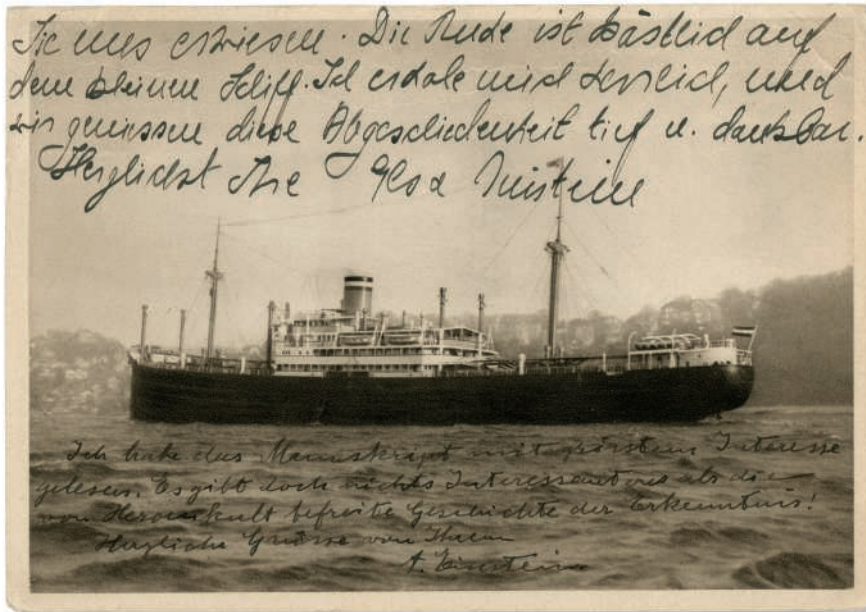 Sie uns erwiesen. Die Ruhe ist köstlich auf
dem kleinen Schiff. Ich erhole mich herrlich, und
wir geniessen diese Abgeschiedenheit tief u. dankbar.
Herzlichst Ihre Elsa Einstein
Ich habe das Manuskript mit grösstem Interesse
gelesen. Es gibt doch nichts Interessanteres als die
von Heroenkult befreite Geschichte der Erkenntnis!
Herzliche Grüsse von Ihrem
A. Einstein